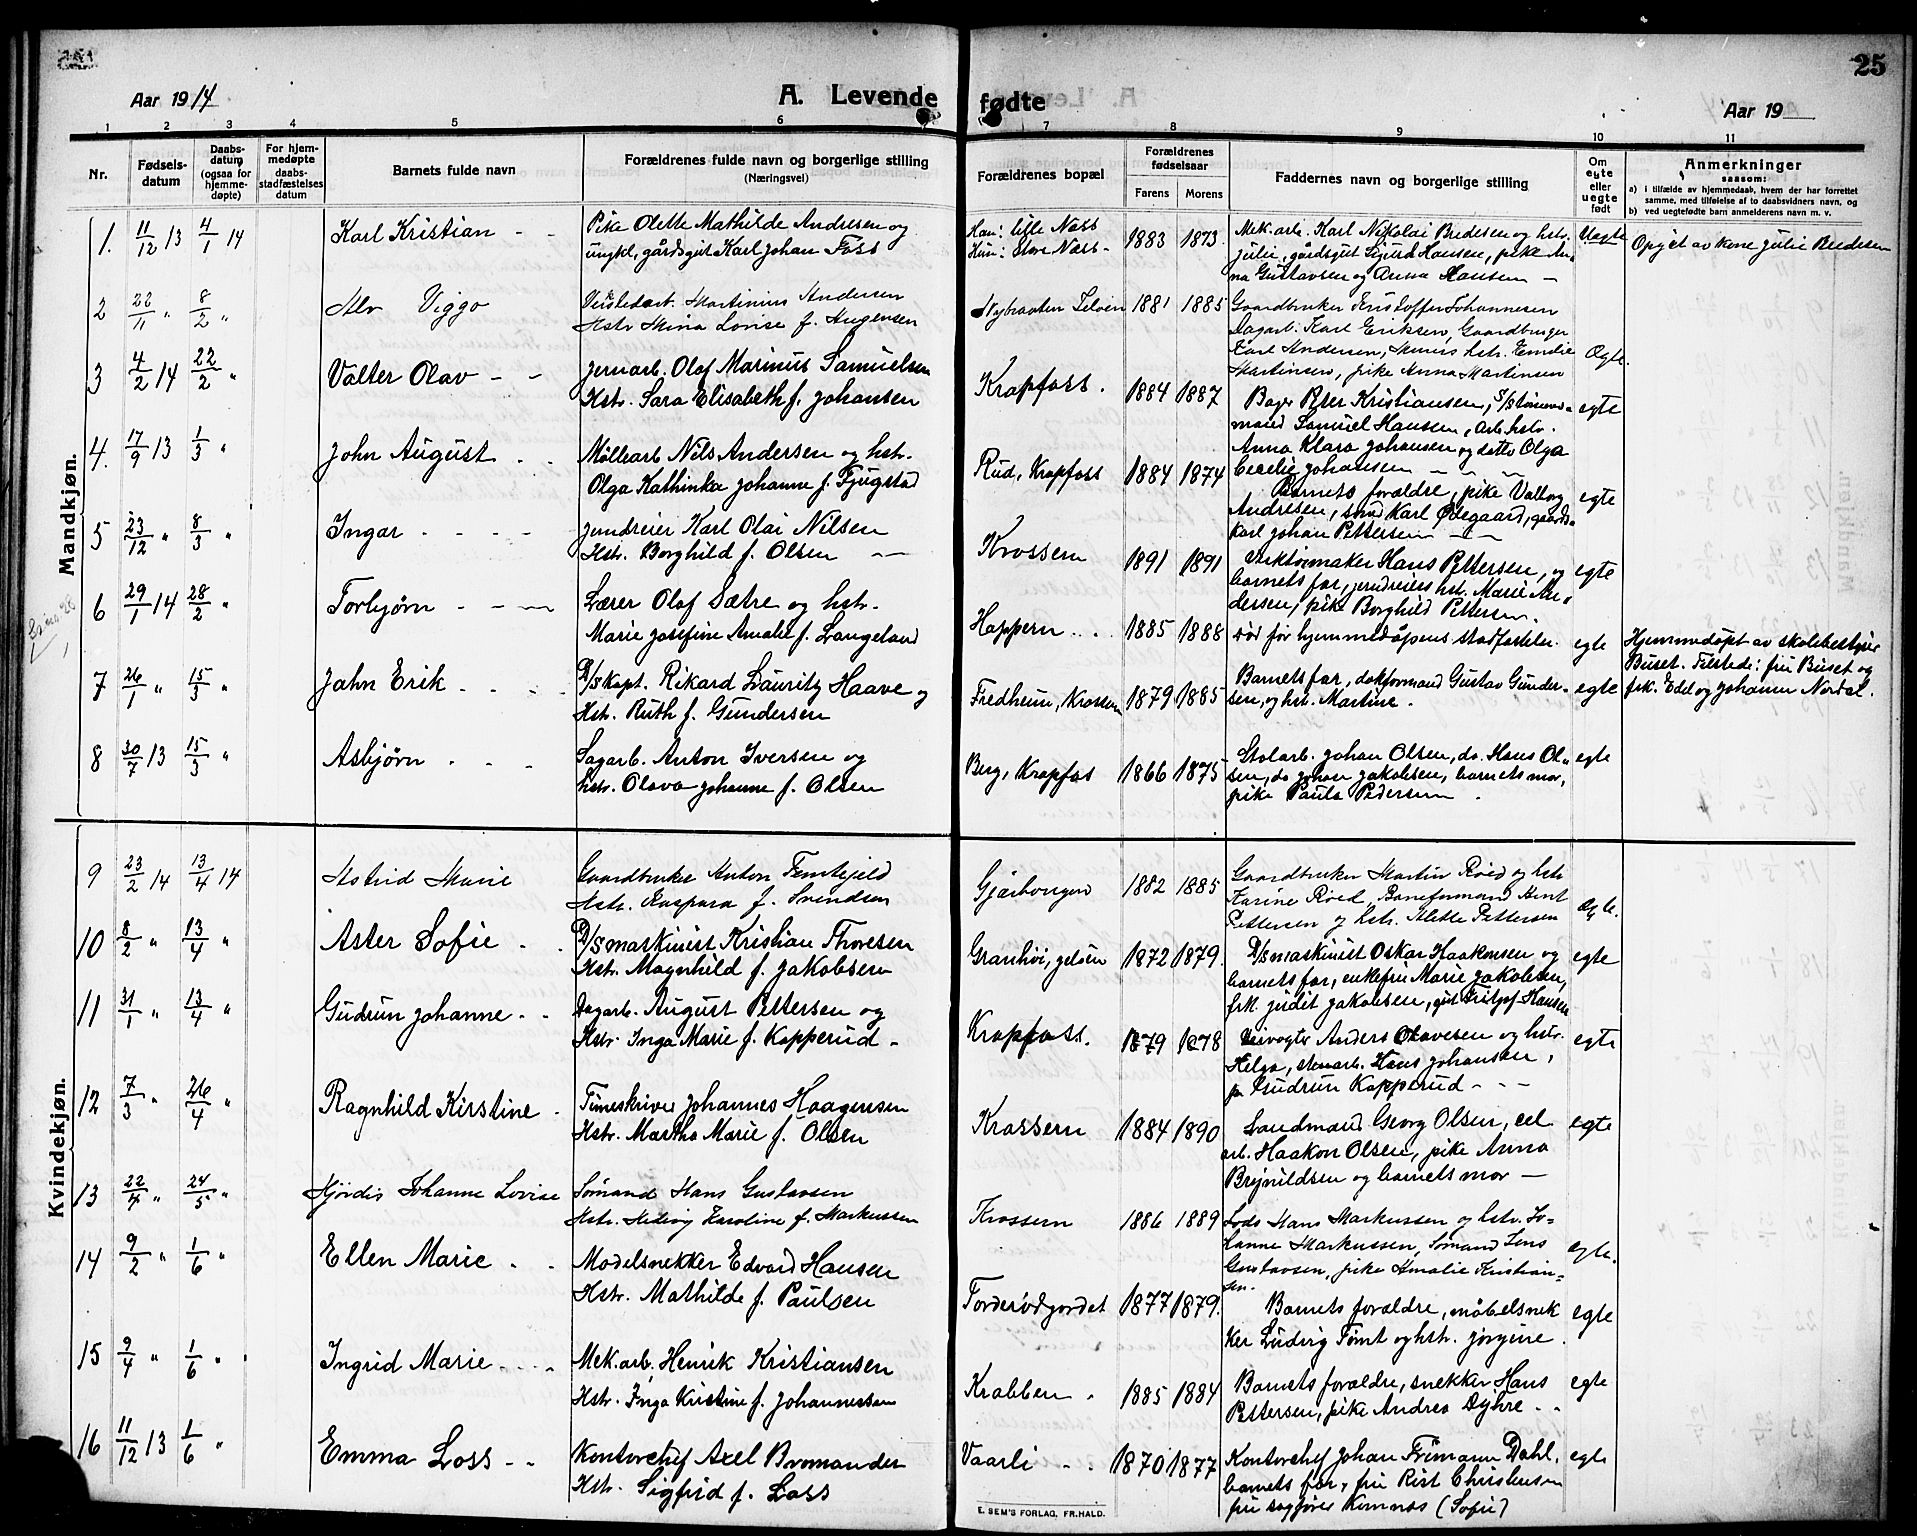 25
Aar 1914
A. Levende fødte
Aar 19
1 2 3 4 5 6 7 8 9 10 11
Nr.
Fødsels-
datum
Daabs-
datum
(ogsaa for
hjemme-
døpte)
For hjem-
medøpte
daabs-
stadfæstelses
datum
Barnets fulde navn
Forældrenes fulde navn og borgerlige stilling
(Næringsvei)
Forældrenes bopæl
Forældrenes
fødselsaar
Farens Morens
Faddernes navn og borgerlige stilling
Om
egte
eller
uegte
født
Anmerkninger
saasom:
a) i tilfælde av hjemmedaab, hvem der har forrettet
samme, med tilføielse af to daabsvidners navn, og
b) ved uegtefødte barn anmelderens navn m. v.
Mandkjøn.
1. 11/12 13 4/1 14 Karl Kristian - -
Pike Olette Mathilde Andresen og
ungkl, gårdsgut Karl Johan Foss
Han: Lille Næss
Hun: Store Næss -
1883 1873.
Mek. arb. Karl Nikolai Bredesen og hstr.
Julie, gårdsgut Sigurd Hansen, pike An-
na Gustavsen og Anna Hansen -
Uegte
Opgit av kone Julie Bredesen
2 22/11 " 8/2 " Alv Viggo
Martinius Andersen
Hstr Mina Lovise f. Jürgensen
Nybraaten Jeløen 1881 1885
Gaardbruker Kristoffer Johannesen
Dagarb. Karl Eriksen, Gaardbruger
Karl Andersen, hstr. Emilie
Martinsen, pike Anna Martinsen
Ægte.
3 4/2 14 22/2 " Valter Olav - -
Jernarb. Olaf Marinus Samuelsen
Hstr. Sara Elisabeth f. Johansen
Krapfoss. 1884 1887
Bager Peter Kristiansen, S/Stømand
Samuel Hanssen, arb. hstr.
Anna Klara Johansen og datter Olga
Cecelie Johansen - - -
egte
4. 17/9 13 1/3 " John August - -
Møllearb Nils Andersen og hstr.
Olga Kathinka Johanne f. Fjugstad
Rud, Krapfoss 1884 1874
Barnets forældre, pike Valborg
Andresen, smed Karl Ødegaard, gaards-
karl Johan Pettersen - -
egte
5 23/12 " 8/3 " Ingar - - - -
Jendreier Karl Olai Nilsen
Hstr. Borghild f. Olsen -
Krossern 1891 1891
Verktøimaker Hans Pettersen, og
barnets far, jendreiers hst. Marie An-
dersen, pike Borghild Pettersen.
egte
6 29/1 14 28/2 " Torbjørn - - -
Lærer Olaf Sætre og hstr.
Marie Josefine Amalie f. Langeland
Hoppern . . 1885 1888
død før hjemmedåpens stadfæstelse.
egte
Hjemmedøpt av skolebestyrer
Buset. Tilstede: fru Buset og
frk. Edel og Johanne Nordal.
7 26/1 " 15/3 " John Erik - - -
D/Skapt. Rikard Lauritz Haave og
Hstr. Ruth f. Gundersen
Fredheim, Krossern 1879 1885
Barnets far, dokformand Gustav Gunder-
sen, og hst. Martine.
egte
8 30/7 13 15/3 " Asbjørn - - -
Sagarb. Anton Iversen og
hstr. Olava Johanne f. Olsen
Berg, Krapfos 1866 1875
Stolarb. Johan Olsen, do. Hans Ol-
sen, do Johan Jakobsen, barnets mor,
pike Paula Pedersen.
egte
Kvindekjøn.
9 23/2 14 13/4 14 Astrid Marie
Gaardbruker Anton Femtejeld
Hstr. Kaspara f. Svendsen
1882 1885
Gaardbruker Martin Røed og hstr
Karine Røed, Baneformand Bernt
Pettersen og hstr. Mette Pettersen
Ægte.
10 8/2 " 13/4 " Aster Sofie - -
D/Smaskinist Kristian Thoresen
Hstr. Magnhild f. Jakobsen
Granhøi, Jeløen 1872 1879.
D/Smaskinist Oskar Haakonsen og
barnets far, enkefru Marie Jakobsen,
frk. Judit Jakobsen, gut Fritjof Hansen
egte
11 31/1 " 13/4 " Gudrun Johanne - -
Dagarb. August Pettersen og
Hstr. Inga Marie f. Kapperud -
Krapfoss. 1879 1878
Veivogter Anders Olavesen og hstr.
Helga, Hans Johansen,
p. Gudrun Kapperud - - -
egte
12 7/3 " 26/4 " Ragnhild Kirstine -
Timeskriver Johannes Haagensen
Hstr. Martha Marie f. Olsen
Krossern 1884 1890
Landmand Georg Olsen, cel.
arb. Haakon Olsen, pike Anna
Brynildsen og barnets mor -
egte
13 22/4 " 24/5 " Hjørdis Johanne Lovise
Sømand Hans Gustavsen
Hstr. Hedvig Karoline f. Markussen
Krossern 1886 1889
Lods Hans Markussen og hstr. Jo-
hanne Markussen, Sømand Jens
Gustavsen, pike Amalie Kristian-
sen.
egte.
14 9/2 " 1/6 " Ellen Marie - -
Modelsnekker Edvard Hansen
Hstr. Mathilde f. Paulsen
Torderødgordet 1877 1879.
Barnets forældre, møbelsnek
ker Ludvig Tømt og hstr. Jørgine.
egte
15 9/4 " 1/6 " Ingrid Marie - - -
Mek. arb. Henrik Kristiansen
Hstr. Inga Kristine f. Johannessen
Krabben - 1885 1884
Barnets forældre, snekker Hans
Pettersen, pike Andrea Dyhre - -
egte
16 11/12 13 1/6 " Emma Loss - -
Kontorchef Axel Bromander
Hstr. Sigfrid f. Loss
Vaarli - - 1870 1877
Kontorchef Johan Frimann Dahl,
barnets far, fru Rist Christensen
fru sagfører Kimnæs (Sofie)
egte
E. SEM'S FORLAG, FR.HALD.